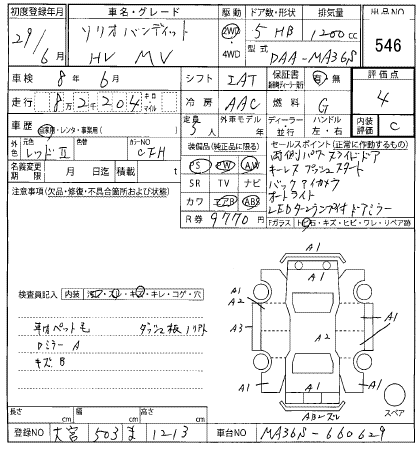 初度登録年月
車名・グレード
駆動
ドア数・形状
排気量
出品NO
29/6月
ソリオバンディット
HV MV
2WD
・
4WD
5 HB
1200cc
型式
DAA-MA36S
546
車検
8年 6月
シフト
IAT
保証書
有・無
評価点
4
走行
8万2千204
キロ
・
マイル
冷房
AAC
燃料
G
内装
C
車歴
自家用・レンタ・事業用( )
定員
5人
外車モデル
年
ディーラー
並行
ハンドル
左・右
元色
レッドII
色
カラーNO
CFH
装備品(純正品に限る)
セールスポイント(正常に作動するもの)
名義変更期限
月 日
積載
t
PS
PW
AW
両側パワースライドドア
キーレスプッシュスタート
注意事項(欠品・修復・不具合箇所および状態)
SR
TV
ナビ
バックアイカメラ
カワ
エアB
ABS
オートライト
R券
9770円
LEDターンランプ付ドアミラー
Fガラス
トビ石・キズ・ヒビ・ワレ・リペア跡
検査員記入
内装
汚レ・スレ・キズ・キレ・コゲ・穴
ペット毛
ダッシュ板
Dミラー A
キズ B
A1
A1
A1
A2
A1
A3
A2
A1
A1
A1
AB2スレ
スペア
長さ
cm
幅
cm
高さ
cm
登録NO
大宮 503 ま 1213
車台NO
MA36S-660629